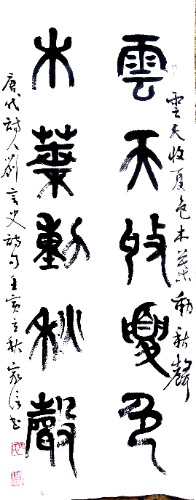 雲天收夏色
木葉動秋聲
雲天收夏色木葉動秋聲
唐代詩人劉言史詩句壬寅立秋家佳書